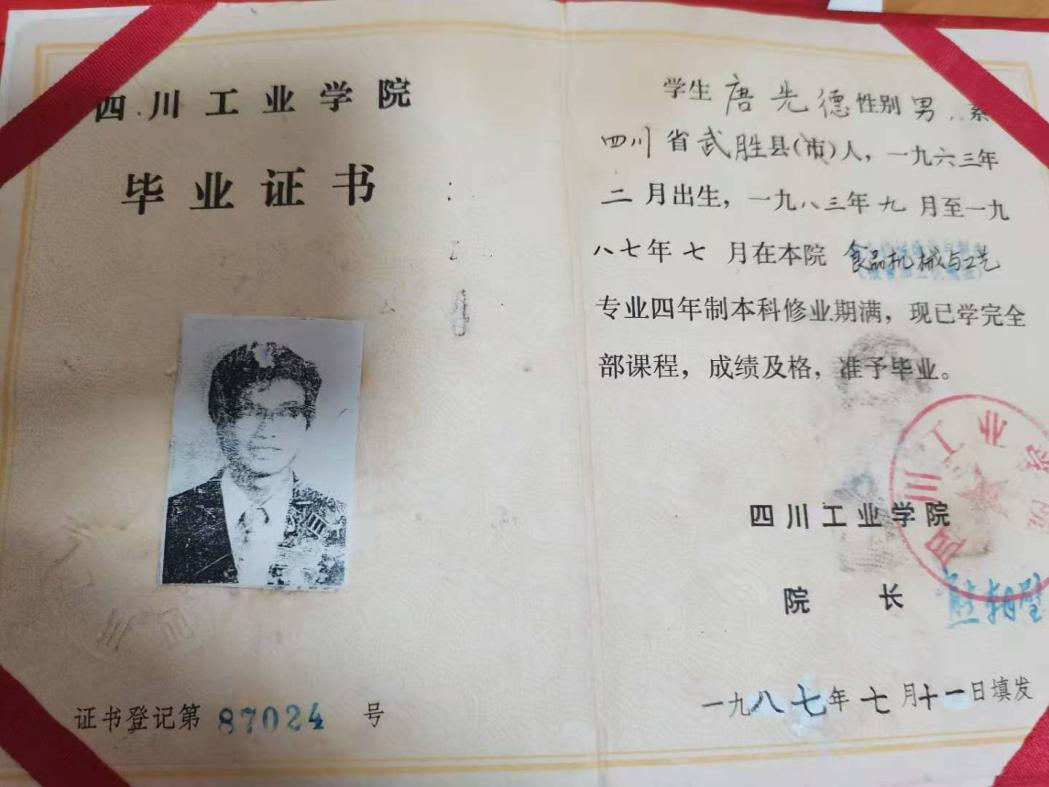 四川工业学院
毕业证书
证书登记第 87024 号
学生 唐先德 性别 男，系
四川省武胜县（市）人，一九六三年
二月出生，一九八三年九月至一九
八七年七月在本院 食品机械与工艺
专业四年制本科修业期满，现已学完全
部课程，成绩及格，准予毕业。
四川工业学院
四川工业学院
院长
一九八七年七月十一日填发